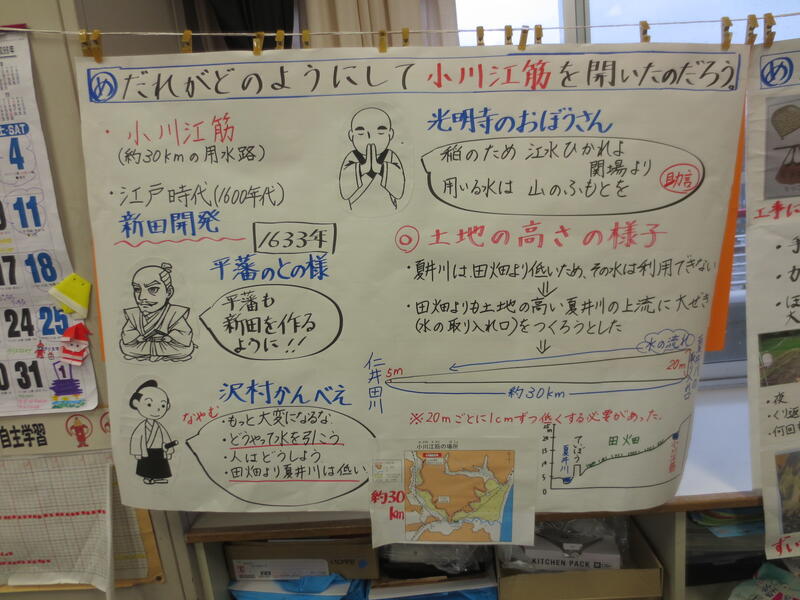 め だれがどのようにして小川江筋を開いたのだろう。
・小川江筋
(約30kmの用水路)
・江戸時代(1600年代)
新田開発
1633年
平藩のとの様
平藩も
新田を作る
ように!!
沢村かんべえ
なやむ
・もっと大変になるな
・どうやって水を引こう
・人はどうしよう
・田畑より夏井川は低い
光明寺のおぼうさん
稲のため 江水ひかれよ
関場より
用いる水は 山のふもとを
助言
○土地の高さの様子
・夏井川は、田畑より低いため、その水は利用できない
⇓
・田畑よりも土地の高い夏井川の上流に大ぜき
(水の取り入れ口)をつくろうとした
⇓
水の流れ
仁井田川
5m
20m
約30km
※20mごとに1cmずつ低くする必要があった。
田畑
ていぼう
夏井川
20
15
10
5
0
小川江筋の場所
約30
km
土・SAT
4
11
17 18
24 25
30 31
1
自主学習
め
工事に
KITCHEN PACK